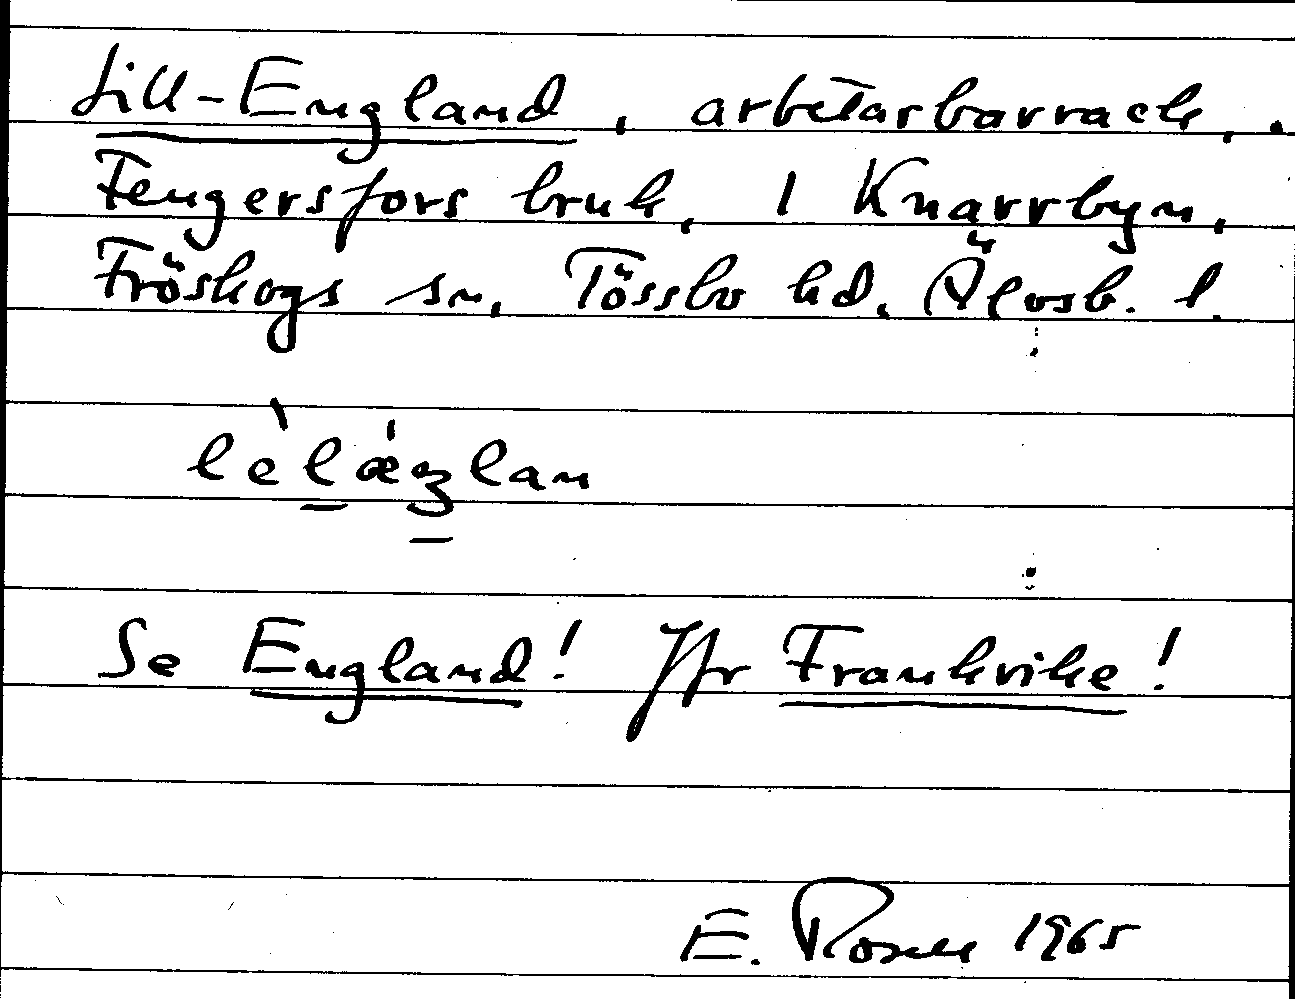 Lill-England, arbetarbarrack,
Fengersfors bruk, 1 Knarrbyn,
Fröskogs sn, Tössbo hd, Älvsb. l.
lèlǽŋlan
Se England! Jfr Frankrike!
E. Rosell 1965